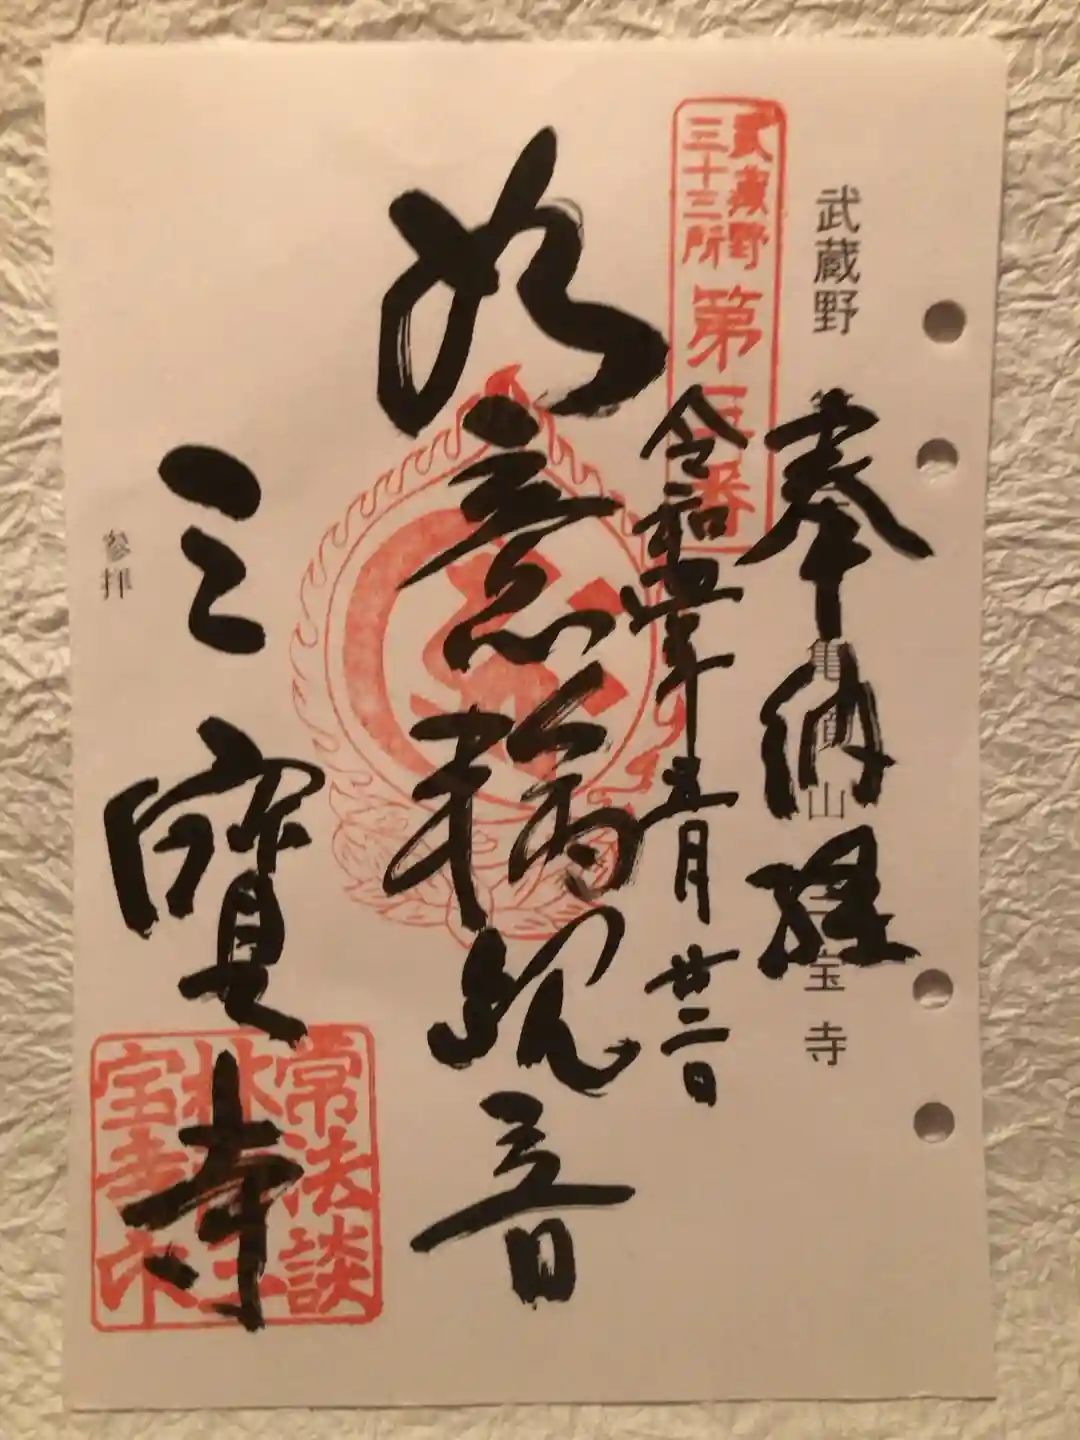 武蔵野
亀頂山
三宝寺
奉納経
武蔵野
三十三所
第三番
令和四年五月廿二日
如意輪観音
三寳寺
参拝
常法談
林
宝寺印